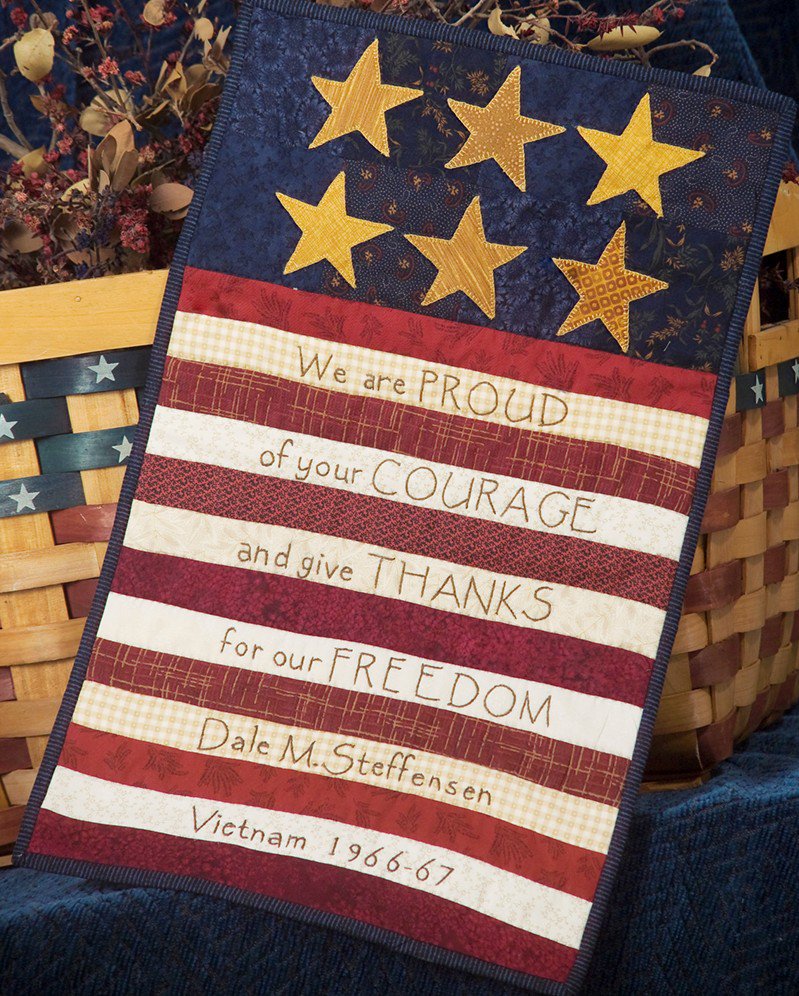 We are PROUD
of your COURAGE
and give THANKS
for our FREEDOM
Dale M. Steffensen
Vietnam 1966-67